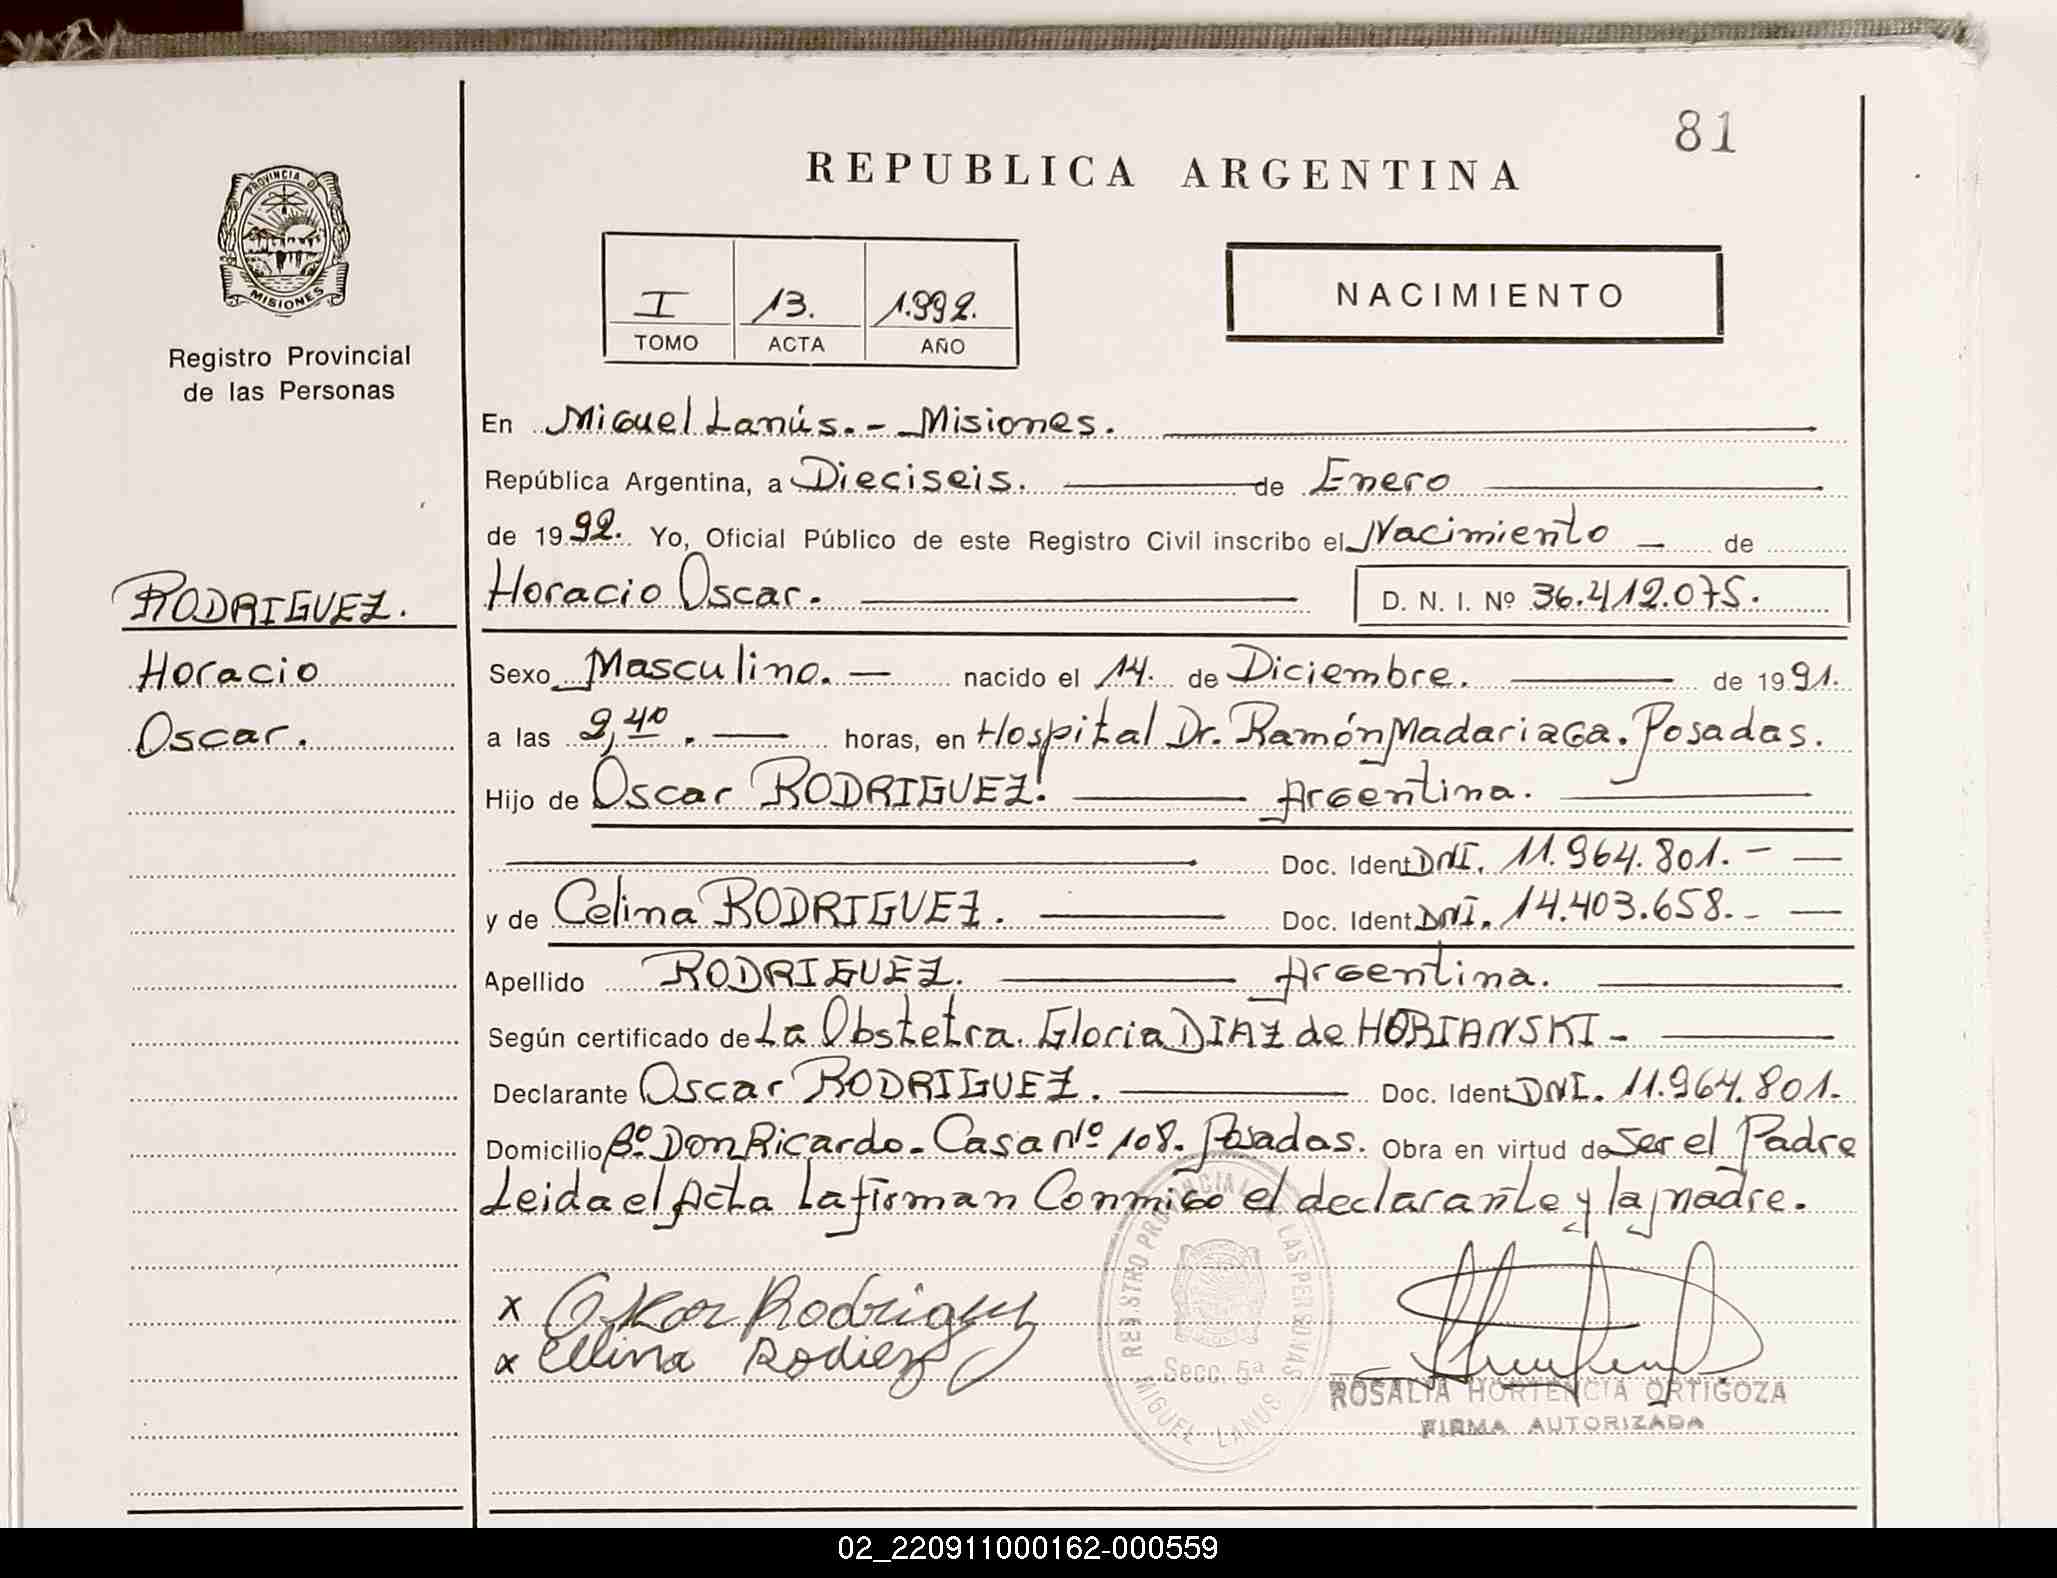 81
REPUBLICA ARGENTINA
PROVINCIA DE
MISIONES
Registro Provincial
de las Personas
I 13. 1.992.
TOMO ACTA AÑO
NACIMIENTO
En Miguel Lanús.- Misiones.
República Argentina, a Dieciseis. de Enero
de 1992. Yo, Oficial Público de este Registro Civil inscribo el Nacimiento - de
Horacio Oscar. D. N. I. Nº 36.412.075.
RODRIGUEZ.
Horacio
Oscar.
Sexo Masculino. - nacido el 14. de Diciembre. de 1991.
a las 2,40. - horas, en Hospital Dr. Ramón Madariaga. Posadas.
Hijo de Oscar RODRIGUEZ. Argentina.
Doc. Ident DNI. 11.964.801.-
y de Celina RODRIGUEZ. Doc. Ident DNI. 14.403.658.-
Apellido RODRIGUEZ. Argentina.
Según certificado de La Obstetra. Gloria DIAZ de HOBIANSKI-
Declarante Oscar RODRIGUEZ. Doc. Ident DNI. 11.964.801.
Domicilio Bº Don Ricardo- Casa Nº 108. Posadas. Obra en virtud de Ser el Padre
Leida el Acta La firman Conmigo el declarante y la madre.
x Oskar Rodriguez
x Celina
REGISTRO PROVINCIAL DE LAS PERSONAS
Secc. 5ª
MIGUEL LANUS
ROSALIA HORTENCIA ORTIGOZA
FIRMA AUTORIZADA
02_220911000162-000559